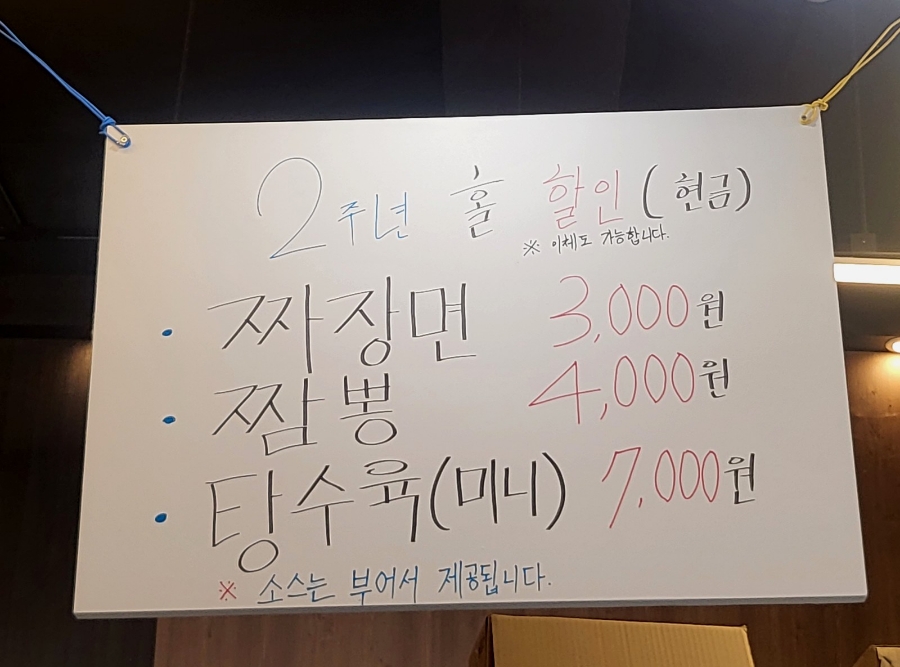 2주년 홀 할인 (현금)
※ 이체도 가능합니다.
• 짜장면 3,000원
• 짬뽕 4,000원
• 탕수육(미니) 7,000원
※ 소스는 부어서 제공됩니다.